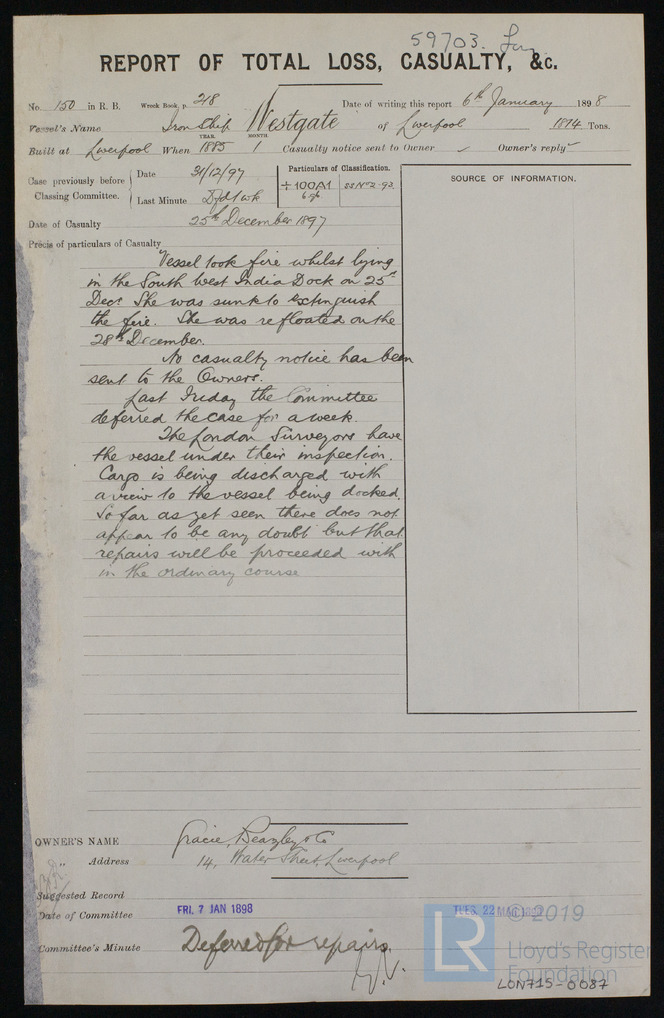 59703.
REPORT OF TOTAL LOSS, CASUALTY, &c.
No. 150 in R. B. Wreck Book, p. 218 Date of writing this report 6th January 1898
Vessel's Name Iron Ship Westgate of Liverpool 1874 Tons.
YEAR. MONTH.
Built at Liverpool When 1885 1 Casualty notice sent to Owner - Owner's reply -
Case previously before Classing Committee. Date 31/12/97 Particulars of Classification. SOURCE OF INFORMATION.
Last Minute Dfd 1 wk +100A1 SS No 2-93
Date of Casualty 25th December 1897
Precis of particulars of Casualty
Vessel took fire whilst lying
in the South West India Dock on 25th
Decr. She was sunk to extinguish
the fire. She was refloated on the
28th December.
No casualty notice has been
sent to the Owners.
Last Friday the Committee
deferred the case for a week.
The London Surveyors have
the vessel under their inspection.
Cargo is being discharged with
a view to the vessel being docked.
So far as yet seen there does not
appear to be any doubt but that
repairs will be proceeded with
in the ordinary course
OWNER'S NAME Gracie, Beazley & Co
" Address 14, Water Street, Liverpool
Suggested Record
Date of Committee FRI. 7 JAN 1898 TUES. 22 MAR
Committee's Minute Deferred for repairs.
© 2019
LR Lloyd's Register
Foundation
LON715-0087